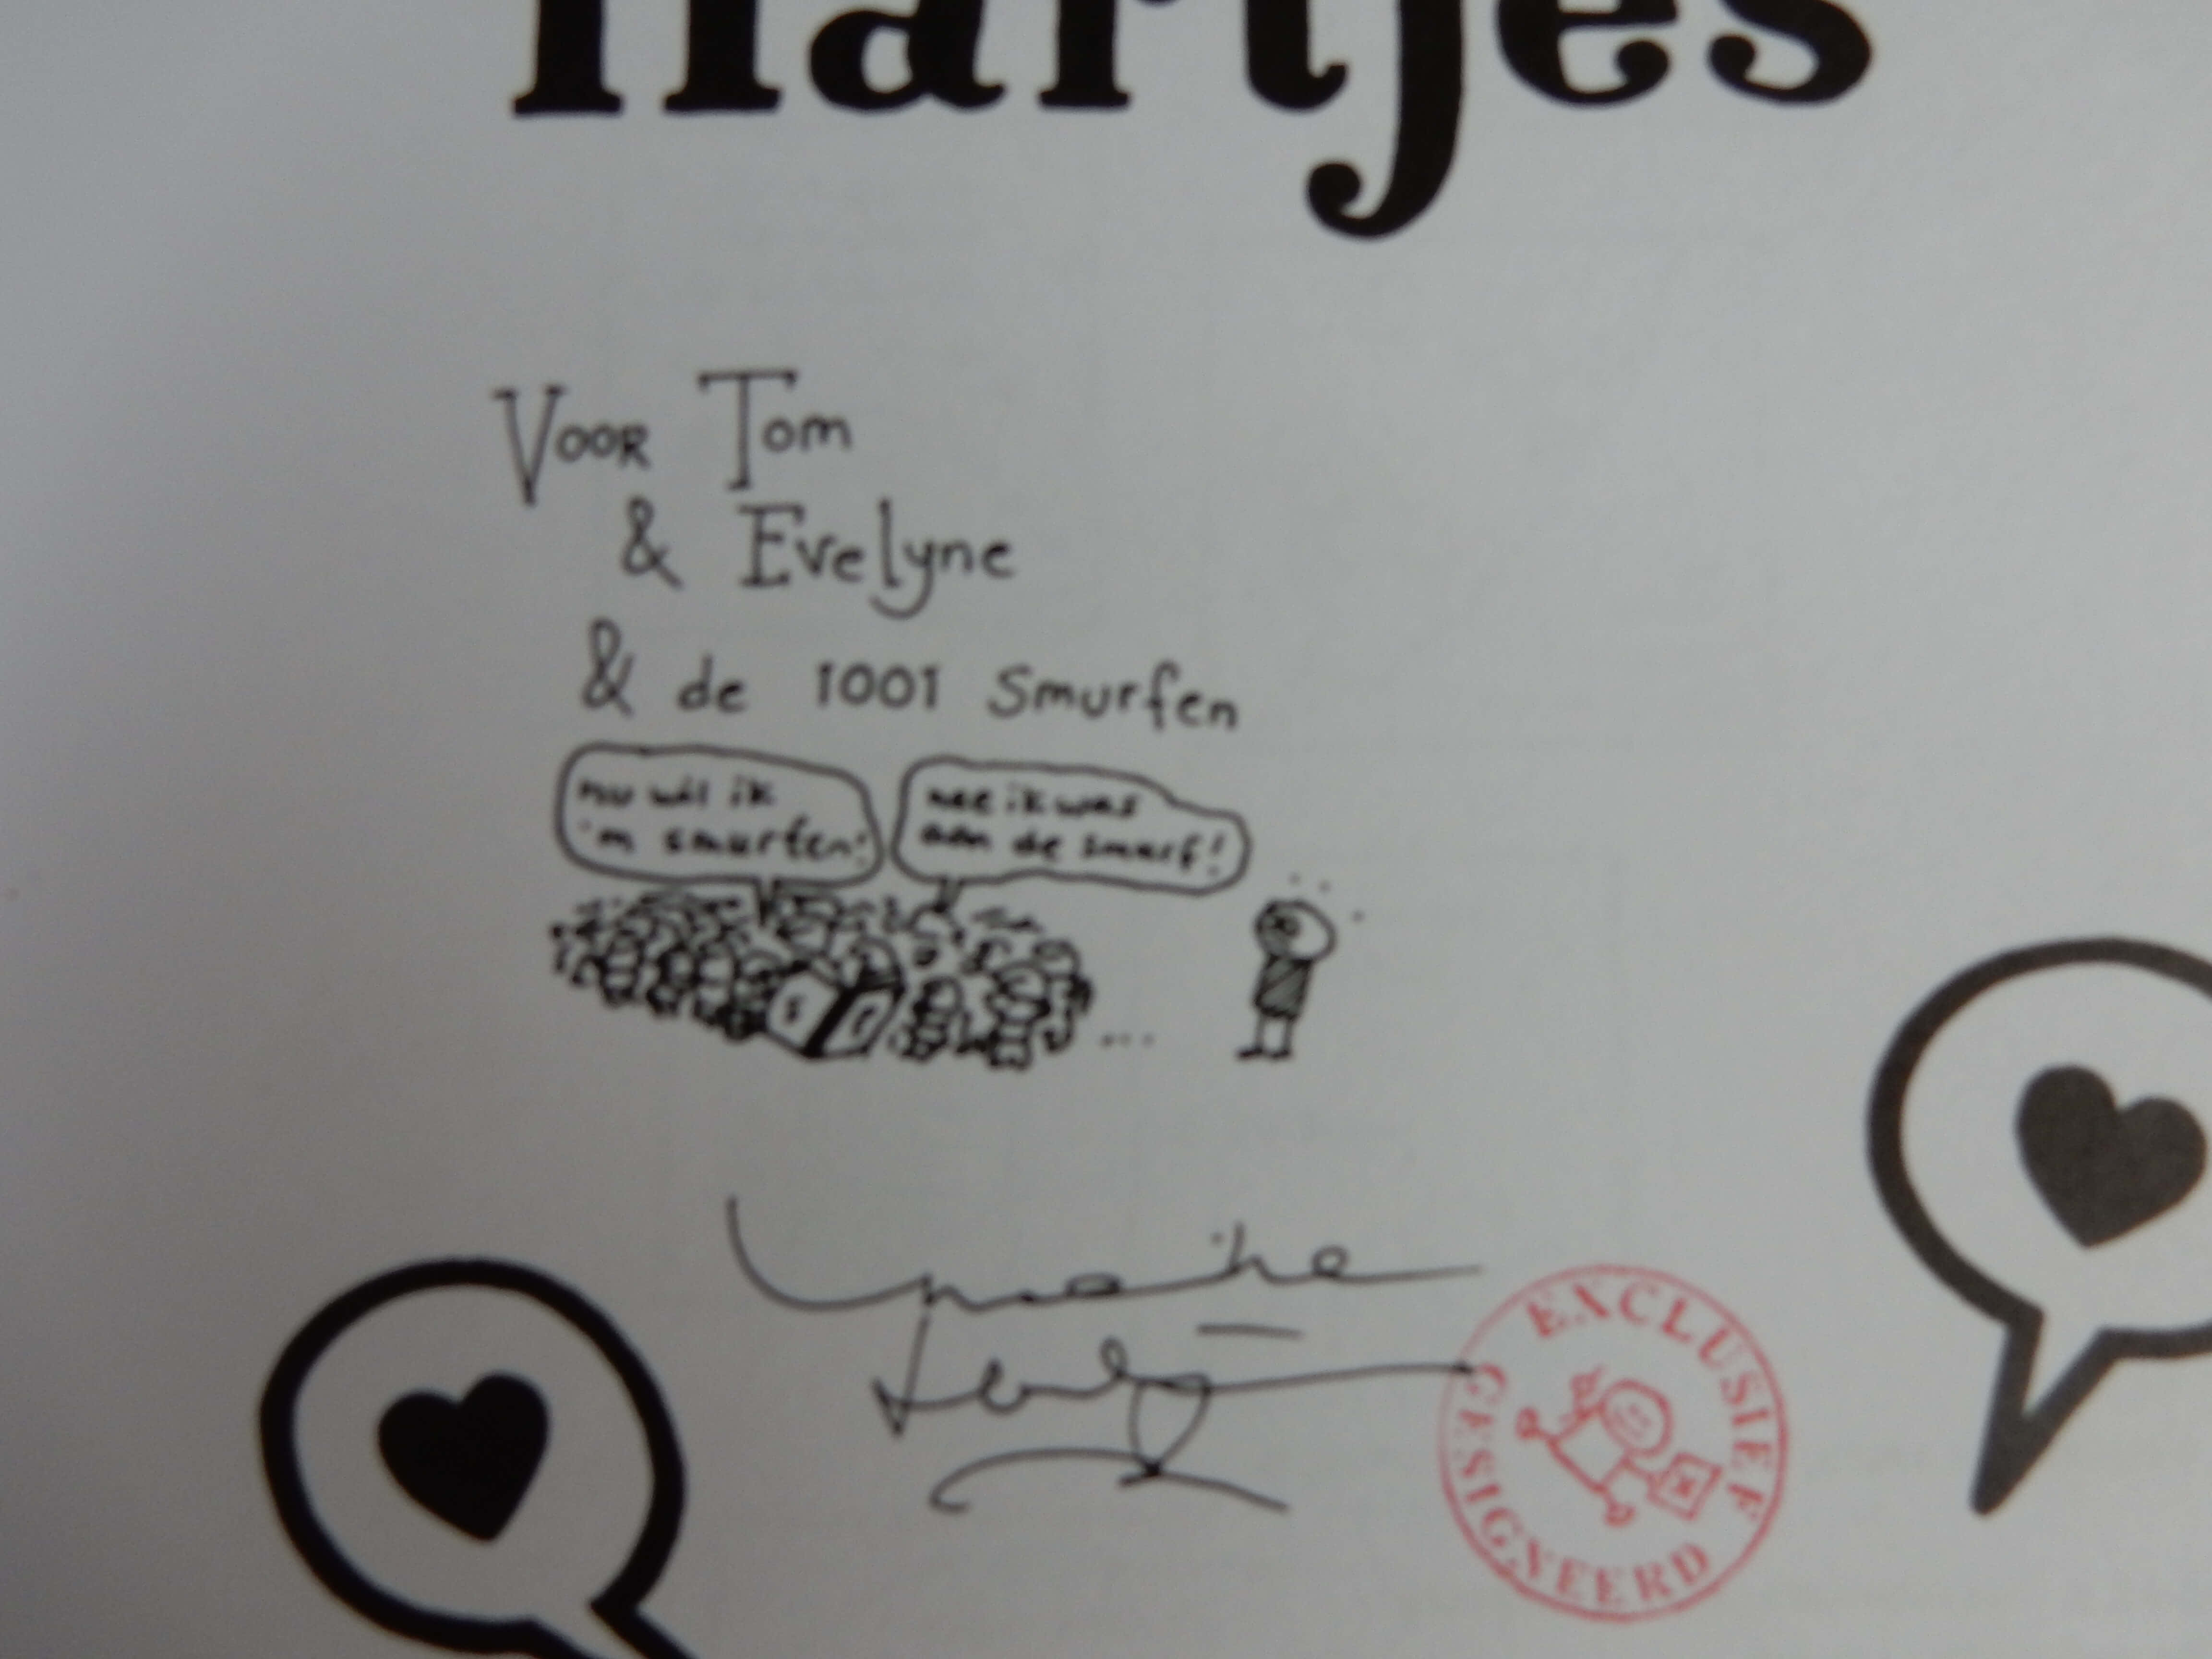 Hartjes
Voor Tom
& Evelyne
& de 1001 Smurfen
nu wil ik
'm smurfen!
nee ik was
aan de smurf!
EXCLUSIEF
GESIGNEERD